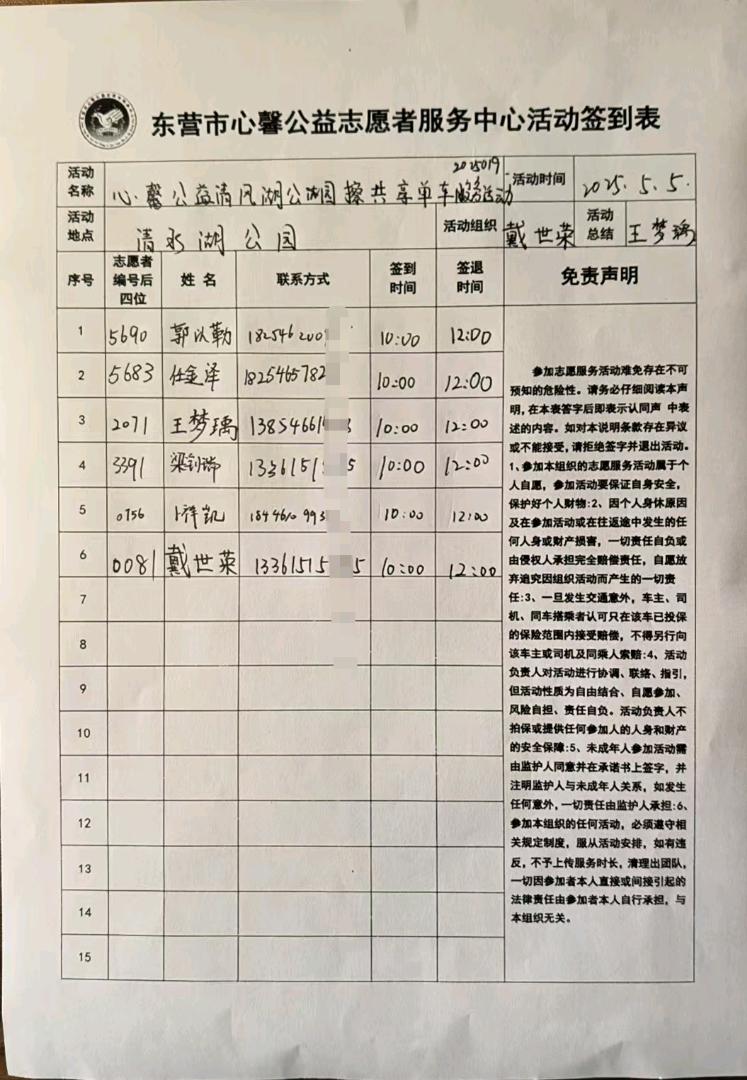 东营市心馨公益志愿者服务中心活动签到表
2025019
活动名称 心馨公益清风湖公湖园擦共享单车服务活动 活动时间 2025.5.5.
活动地点 清风湖公园 活动组织 戴世荣 活动总结 王梦瑀
序号 志愿者编号后四位 姓名 联系方式 签到时间 签退时间 免责声明
1 5690 郭以勤 18254620 10:00 12:00
2 5683 任金泽 1825465782 10:00 12:00
3 2071 王梦瑀 138546614 3 10:00 12:00
4 3391 梁钊瑞 1336151 5 10:00 12:00
5 0756 卜祥凯 184461099 10:00 12:00
6 0081 戴世荣 13361515 5 10:00 12:00
7
8
9
10
11
12
13
14
15
参加志愿服务活动难免存在不可
预知的危险性。请务必仔细阅读本声
明,在本表签字后即表示认同声 中表
述的内容。如对本说明条款存在异议
或不能接受,请拒绝签字并退出活动。
1、参加本组织的志愿服务活动属于个
人自愿,参加活动要保证自身安全,
保护好个人财物:2、因个人身休原因
及在参加活动或在往返途中发生的任
何人身或财产损害,一切责任自负或
由侵权人承担完全赔偿责任,自愿放
弃追究因组织活动而产生的一切责
任:3、一旦发生交通意外,车主、司
机、同车搭乘者认可只在该车已投保
的保险范围内接受赔偿,不得另行向
该车主或司机及同乘人索赔:4、活动
负责人对活动进行协调、联络、指引,
但活动性质为自由结合、自愿参加、
风险自担、责任自负。活动负责人不
拍保或提供任何参加人的人身和财产
的安全保障:5、未成年人参加活动需
由监护人同意并在承诺书上签字,并
注明监护人与未成年人关系,如发生
任何意外,一切责任由监护人承担:6、
参加本组织的任何活动,必须遵守相
关规定制度,服从活动安排,如有违
反,不予上传服务时长,清理出团队,
一切因参加者本人直接或间接引起的
法律责任由参加者本人自行承担,与
本组织无关。